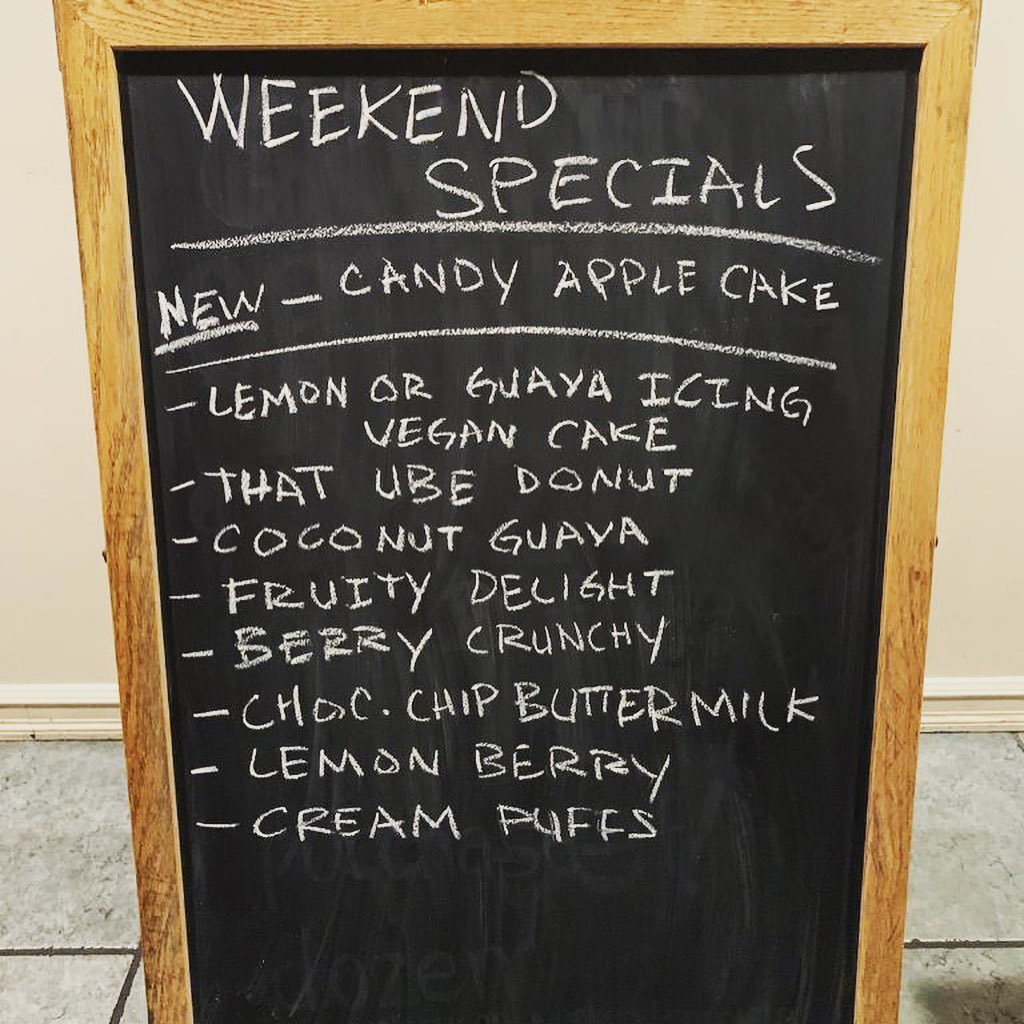 WEEKEND
SPECIALS
NEW - CANDY APPLE CAKE
- LEMON OR GUAVA ICING
VEGAN CAKE
- THAT UBE DONUT
- COCONUT GUAVA
- FRUITY DELIGHT
- BERRY CRUNCHY
- CHOC. CHIP BUTTERMILK
- LEMON BERRY
- CREAM PUFFS